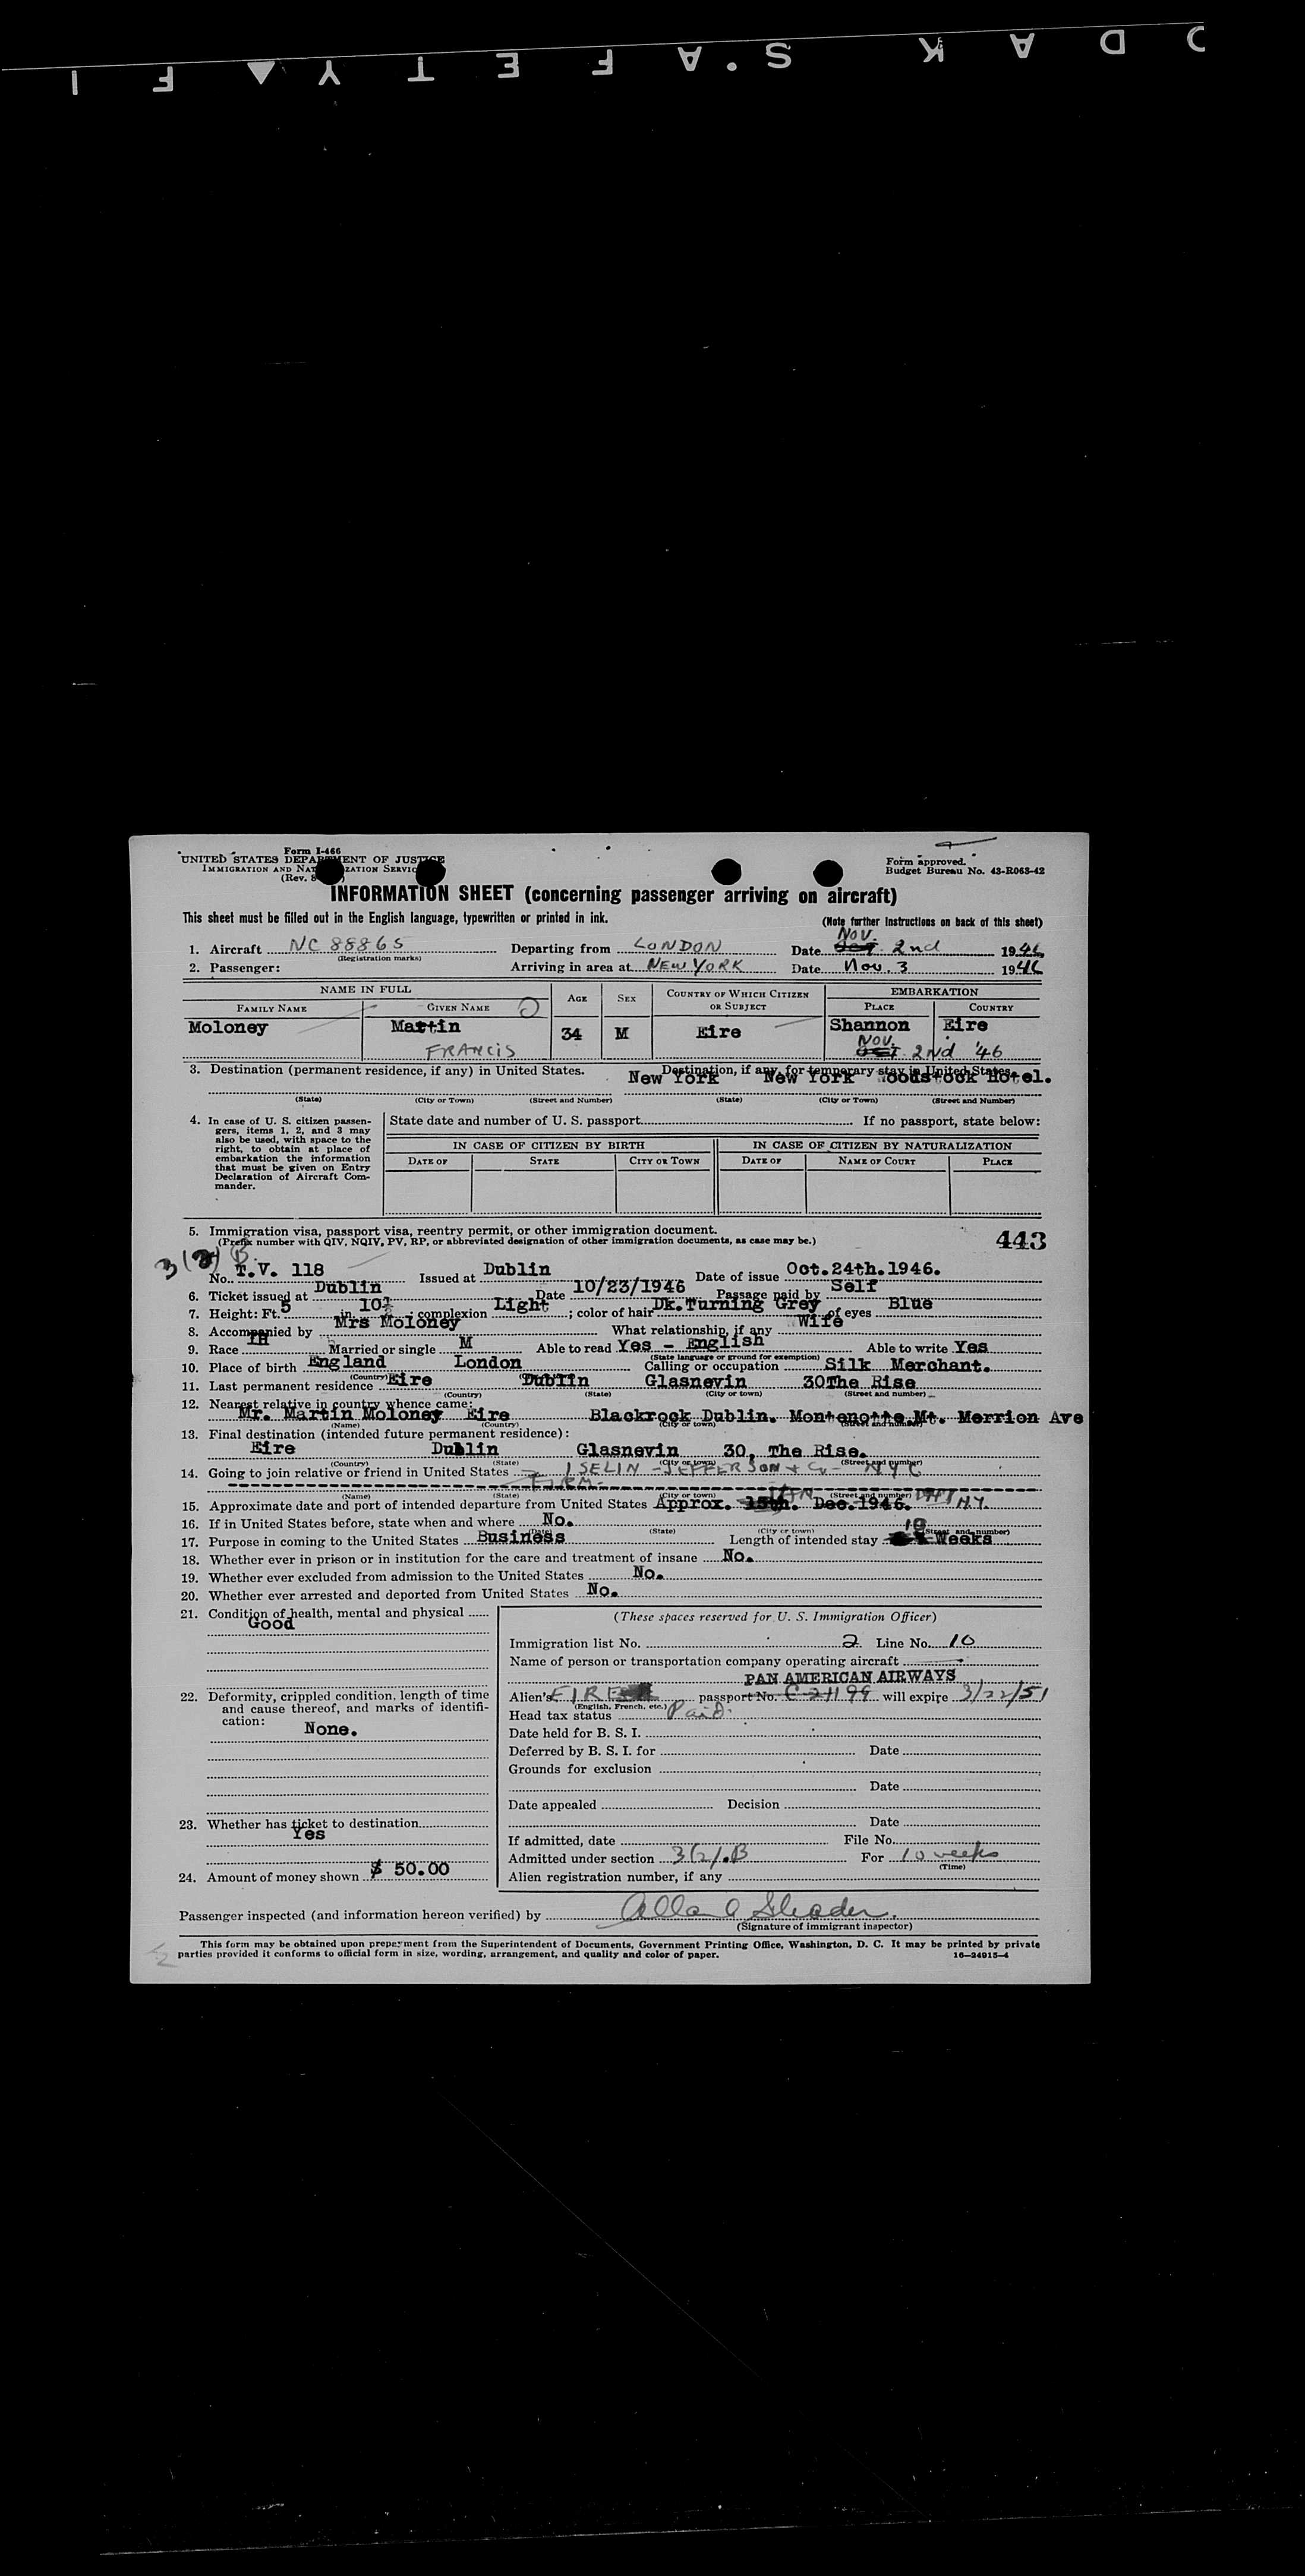 I F ▼ Y T E F A . S K A D O
Form I-466
UNITED STATES DEPARTMENT OF JUSTICE
IMMIGRATION AND NATURALIZATION SERVICE
(Rev. 8
Form approved.
Budget Bureau No. 43-R063-42
INFORMATION SHEET (concerning passenger arriving on aircraft)
This sheet must be filled out in the English language, typewritten or printed in ink.
(Note further instructions on back of this sheet)
NOV.
1. Aircraft NC 88865 Departing from LONDON Date 2nd 1946
(Registration marks)
2. Passenger: Arriving in area at NEW YORK Date Nov. 3 1946
NAME IN FULL AGE SEX COUNTRY OF WHICH CITIZEN OR SUBJECT EMBARKATION
FAMILY NAME GIVEN NAME PLACE COUNTRY
Moloney Martin 34 M Eire Shannon Eire
FRANCIS NOV. 2nd '46
3. Destination (permanent residence, if any) in United States. Destination, if any, for temporary stay in United States.
New York New York Woodstock Hotel.
(State) (City or Town) (Street and Number) (State) (City or Town) (Street and Number)
4. In case of U. S. citizen passengers, items 1, 2, and 3 may also be used, with space to the right, to obtain at place of embarkation the information that must be given on Entry Declaration of Aircraft Commander.
State date and number of U. S. passport If no passport, state below:
IN CASE OF CITIZEN BY BIRTH IN CASE OF CITIZEN BY NATURALIZATION
DATE OF STATE CITY OR TOWN DATE OF NAME OF COURT PLACE
5. Immigration visa, passport visa, reentry permit, or other immigration document.
(Prefix number with QIV, NQIV, PV, RP, or abbreviated designation of other immigration documents, as case may be.)
443
3(2) B.
No. T.V. 118 Issued at Dublin Date of issue Oct.24th.1946.
6. Ticket issued at Dublin Date 10/23/1946 Passage paid by Self
7. Height: Ft. 5 in. 10½ ; complexion Light ; color of hair Dk.Turning Grey of eyes Blue
8. Accompanied by Mrs Moloney What relationship, if any Wife
9. Race IH Married or single M Able to read Yes - English Able to write Yes
(State language or ground for exemption)
10. Place of birth England London Calling or occupation Silk Merchant.
(Country)
11. Last permanent residence Eire Dublin Glasnevin 30The Rise
(Country) (State) (City or town) (Street and number)
12. Nearest relative in country whence came:
Mr. Martin Moloney Eire Blackrock Dublin. Montenotte Mt. Merrion Ave
(Name) (Country) (City or town) (Street and number)
13. Final destination (intended future permanent residence):
Eire Dublin Glasnevin 30, The Rise.
(Country) (State) (City or town) (Street and number)
14. Going to join relative or friend in United States ISELIN - JEFFERSON + Co - NYC
FIRM.
(Name) (State) (City or town) (Street and number)
15. Approximate date and port of intended departure from United States Approx. 15th. Dec.1946. N.Y.
16. If in United States before, state when and where No.
(Date) (State) (City or town) (Street and number)
17. Purpose in coming to the United States Business Length of intended stay 10 Weeks
18. Whether ever in prison or in institution for the care and treatment of insane No.
19. Whether ever excluded from admission to the United States No.
20. Whether ever arrested and deported from United States No.
21. Condition of health, mental and physical
Good
22. Deformity, crippled condition, length of time and cause thereof, and marks of identification:
None.
23. Whether has ticket to destination
Yes
24. Amount of money shown $ 50.00
(These spaces reserved for U. S. Immigration Officer)
Immigration list No. 2 Line No. 10
Name of person or transportation company operating aircraft
PAN AMERICAN AIRWAYS
Alien's EIRE passport No. C 24199 will expire 3/22/51
(English, French, etc.)
Head tax status Paid.
Date held for B. S. I.
Deferred by B. S. I. for Date
Grounds for exclusion
Date
Date appealed Decision
Date
If admitted, date File No.
Admitted under section 3(2).B For 10 weeks
(Time)
Alien registration number, if any
Passenger inspected (and information hereon verified) by
(Signature of immigrant inspector)
This form may be obtained upon prepayment from the Superintendent of Documents, Government Printing Office, Washington, D. C. It may be printed by private
parties provided it conforms to official form in size, wording, arrangement, and quality and color of paper.
16—24915-4